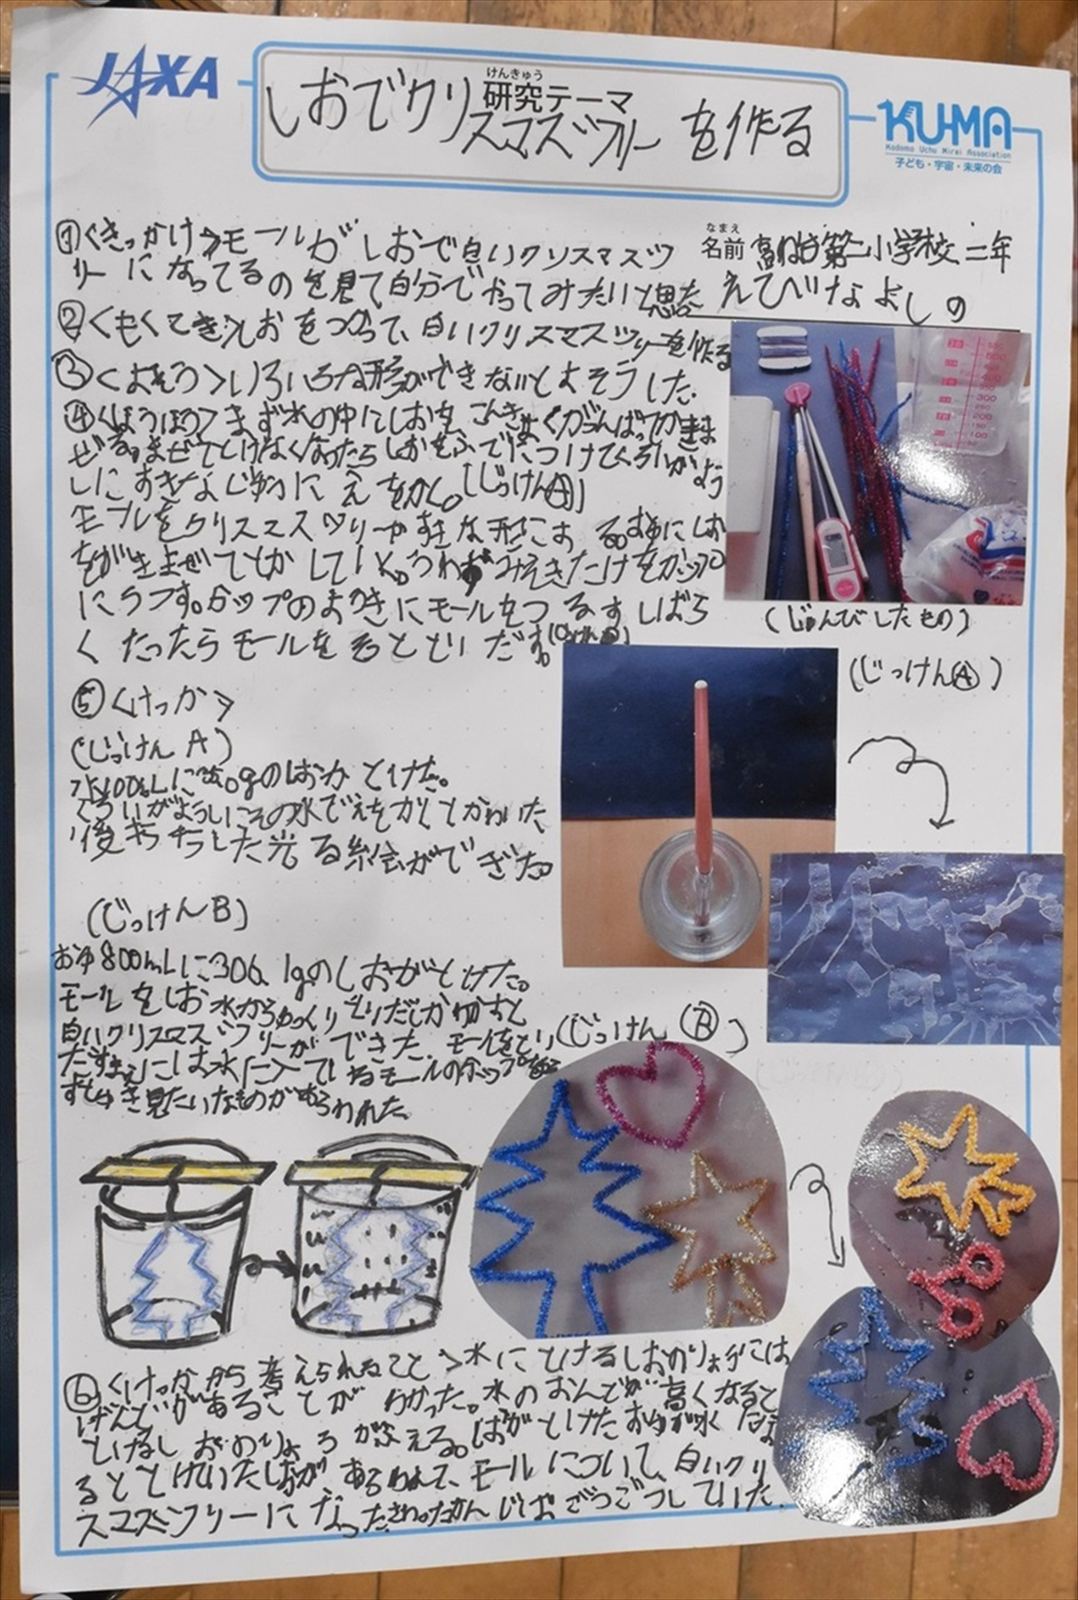 JAXA
けんきゅう
研究テーマ
しおでクリスマスツリーを作る
KU-MA
Kodomo Uchu Mirai Association
子ども・宇宙・未来の会
①<きっかけ>モールがしおで白いクリスマスツ
リーになってるのを見て自分でやってみたいと思った
なまえ
名前
第二小学校 二年
えびなよしの
②<もくてき>しおをつかって、白いクリスマスツリーを作る
③<よそう>いろいろな形ができないとよそうした。
④<ほうほう>まず水の中にしおをこんきよくがんばってかきま
ぜる。まぜてとけなくなったらしおをふでにつけてくろいがよう
しにすきなじゅうにえをかく。(じっけんⒶ)
モールをクリスマスツリーやすきな形におる。おゆにしお
をかきまぜてとかしていく。うわずみえきだけをカップ
にうつす。カップのまわりにモールをつるす しばら
くたったらモールをそっととりだす。
(じゅんびしたもの)
(じっけんⒶ)
⑤<けっか>
(じっけんA)
水100mLに gのしおがとけた。
くろいがようしにその水でえをかくとかわいた
後キラキラした光る絵ができた。
(じっけんB)
おゆ800mLに306.1gのしおがとけた。
モールをしお水からゆっくりとりだしかわかすと
白いクリスマスツリーができた。モールをとり
だすまえにしお水に入っているモールのカップを
すなゆき見たいなものがあらわれた。
(じっけんⒷ)
⑥<けっかから考えられること>水にとけるしおのりょうには
げんどがあることがわかった。水のおんどが高くなると
とけるしおのりょうがふえる。しおがとけたおゆが水にな
るととけていたしおがあらわれて、モールについて、白いクリ
スマスツリーになった。さわったかんじはごつごつしていた。